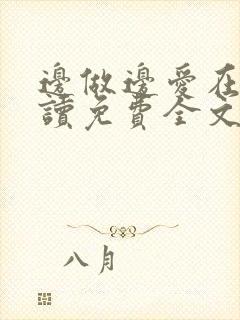 邊做邊愛在
讀免費全文
八月